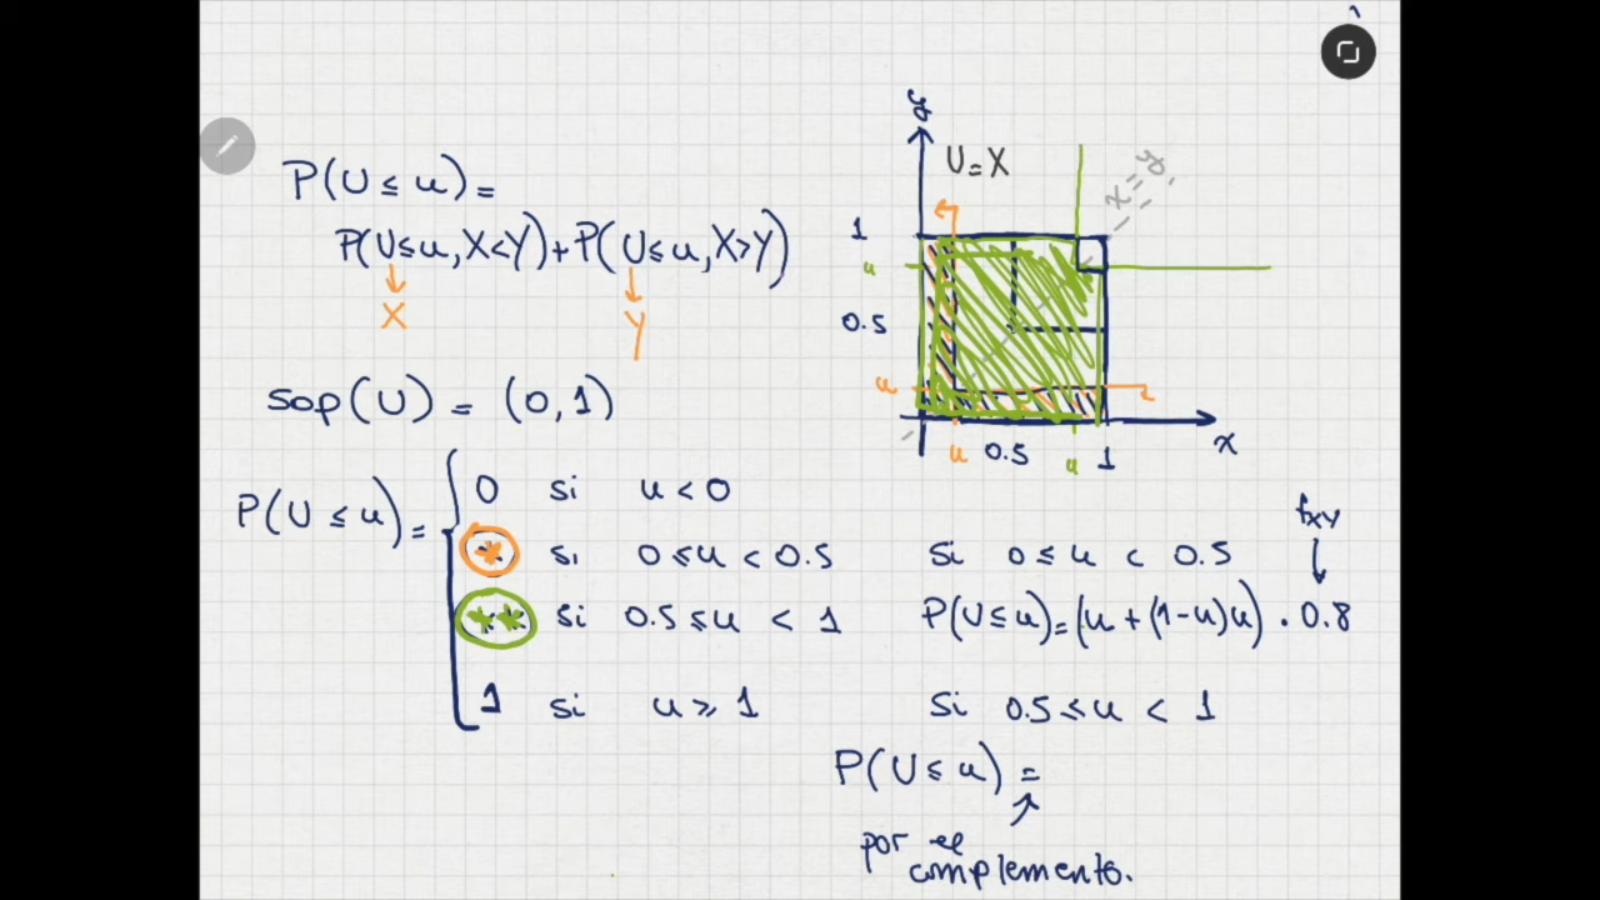 P(U ≤ u) =
P(U ≤ u, X < Y) + P(U ≤ u, X > Y)
X
Y
sop(U) = (0, 1)
P(U ≤ u) =
0 si u < 0
* si 0 ≤ u < 0.5
** si 0.5 ≤ u < 1
1 si u ≥ 1
y
U = X
x = y
1
u
0.5
u
u 0.5 u 1
x
fXY
Si 0 ≤ u < 0.5
P(U ≤ u) = (u + (1 - u)u) · 0.8
Si 0.5 ≤ u < 1
P(U ≤ u) =
por el
complemento.